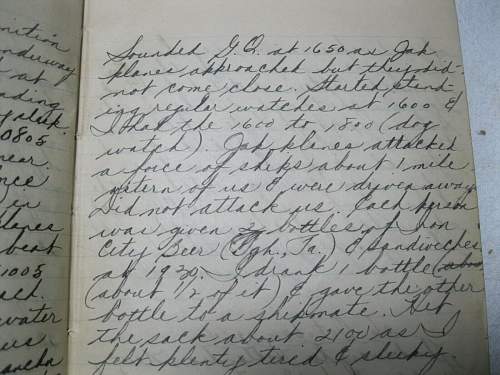 nition
underway
at
ading
0805
near.
ence
en
planes
beat
1005
ach.
water
us
Sounded G.Q. at 1650 as Jap
planes approached but they did
not come close. Started stand-
ing regular watches at 1600 &
I had the 1600 to 1800 (dog
watch). Jap planes attacked
a force of ships about 1 mile
astern of us & were driven away.
Did not attack us. Each person
was given 2 bottles of Iron
City Beer (Pgh., Pa.) & sandwiches
at 1930. I drank 1 bottle
(about 1/2 of it) & gave the other
bottle to a shipmate. Hit
the sack about 2100 as I
felt plenty tired & sleepy.